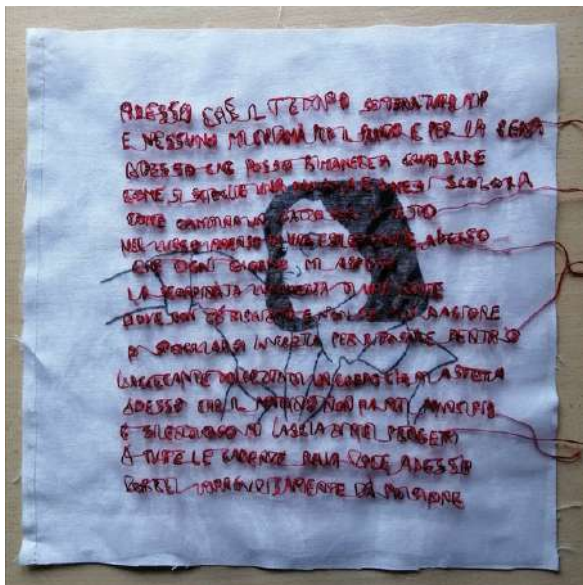 ADESSO CHE IL TEMPO SEMBRA TUTTO MIO
E NESSUNO MI CHIAMA PER IL PRANZO E PER LA CENA
ADESSO CHE POSSO RIMANERE A GUARDARE
COME SI SCIOGLIE UNA NUVOLA E SCOLORA
COME CAMMINA UN GATTO PER IL TETTO
NEL LUSSO IMMENSO DI UNA ESPLORAZIONE ADESSO
CHE OGNI GIORNO MI ASPETTA
LA SCONFINATA LUNGHEZZA DI UNA NOTTE
DOVE NON C'È RICHIAMO E NON C'È PIÙ RAGIONE
DI SPOGLIARSI IN FRETTA PER RIPOSARE DENTRO
L'ACCECANTE DOLCEZZA DI UN CORPO CHE MI ASPETTA
ADESSO CHE IL MATTINO NON HA MAI PRINCIPIO
E SILENZIOSO MI LASCIA AI MIEI PROGETTI
A TUTTE LE CADENZE DELLA VOCE ADESSO
VORREI IMPROVVISAMENTE LA PRIGIONE